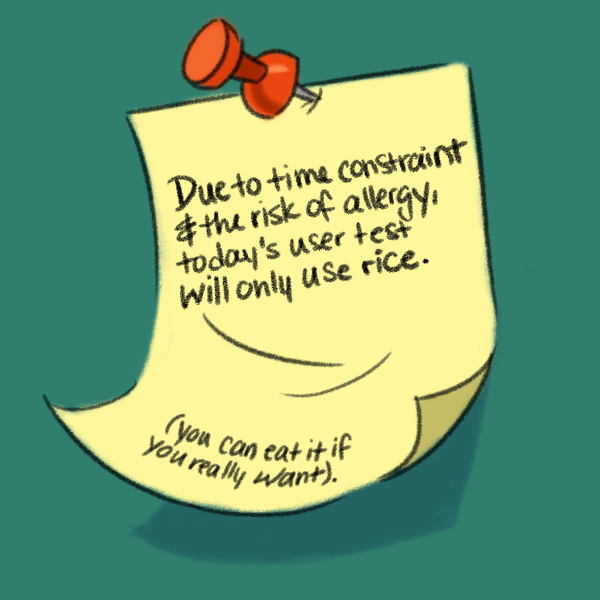 Due to time constraint
& the risk of allergy,
today's user test
will only use rice.
(you can eat it if
you really want).